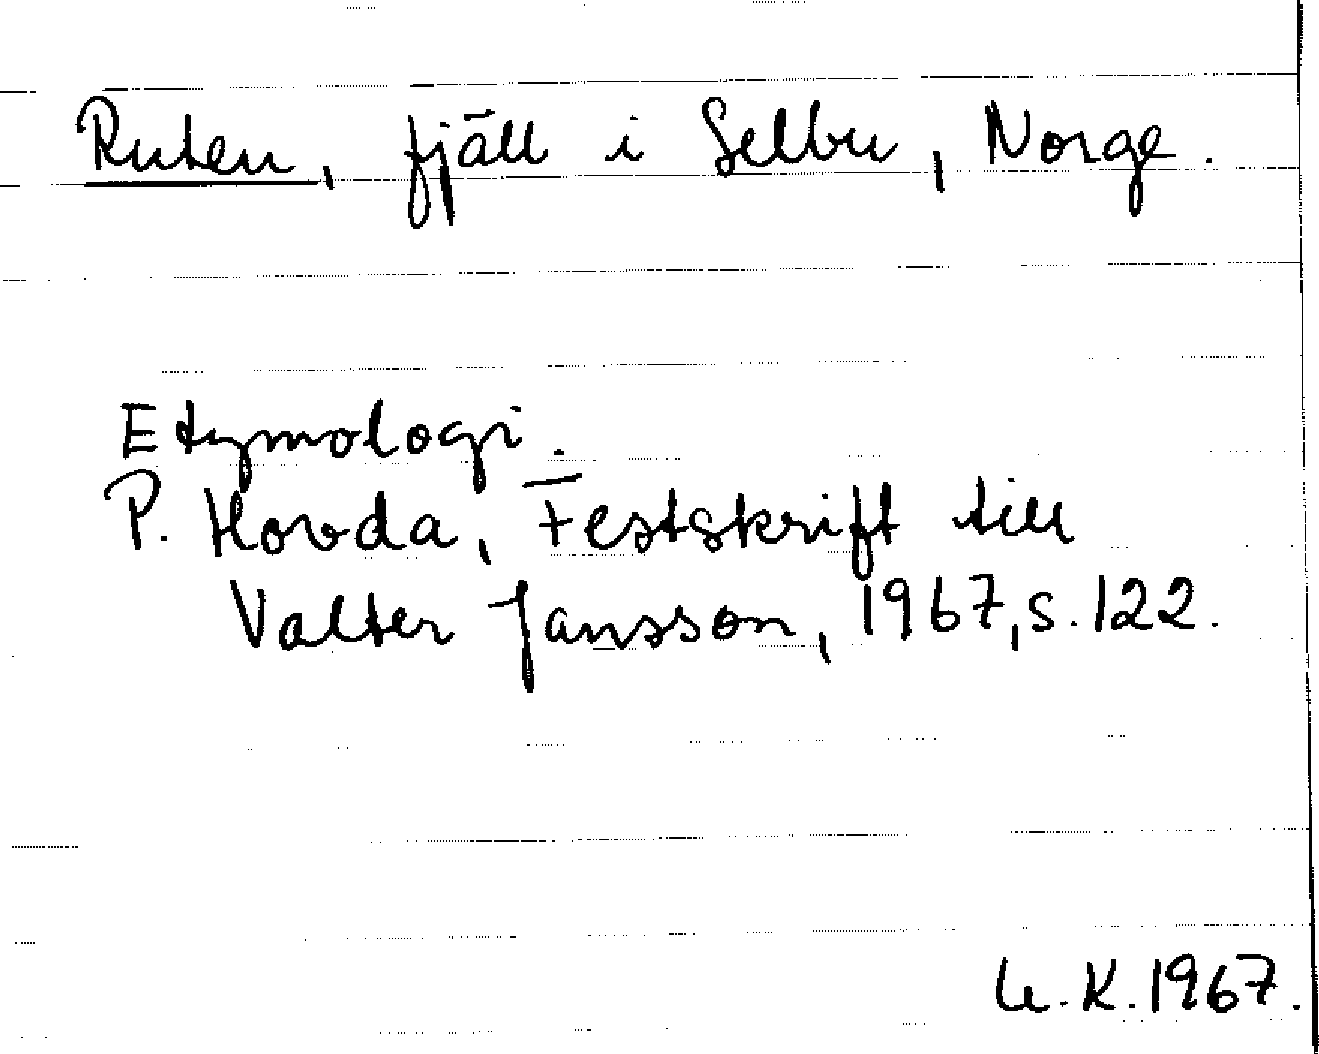 Ruten, fjäll i Selbu, Norge.
Etymologi.
P. Hovda, Festskrift till
Valter Jansson, 1967, s. 122.
U.K. 1967.